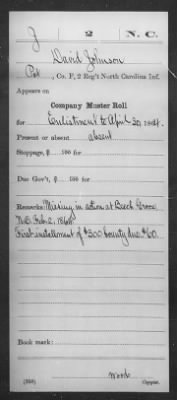 J | 2 | N.C.
David Johnson
Pvt, Co. F, 2 Reg't North Carolina Inf.
Appears on
Company Muster Roll
for Enlistment to April 30, 1864.
Present or absent absent
Stoppage, $ 100 for
Due Gov't, $ 100 for
Remarks: Missing in action at Beech Grove
N.C. Feb. 2, 1864.
First installment of $300 bounty due $60.
Book mark:
Wood
(358) Copyist.